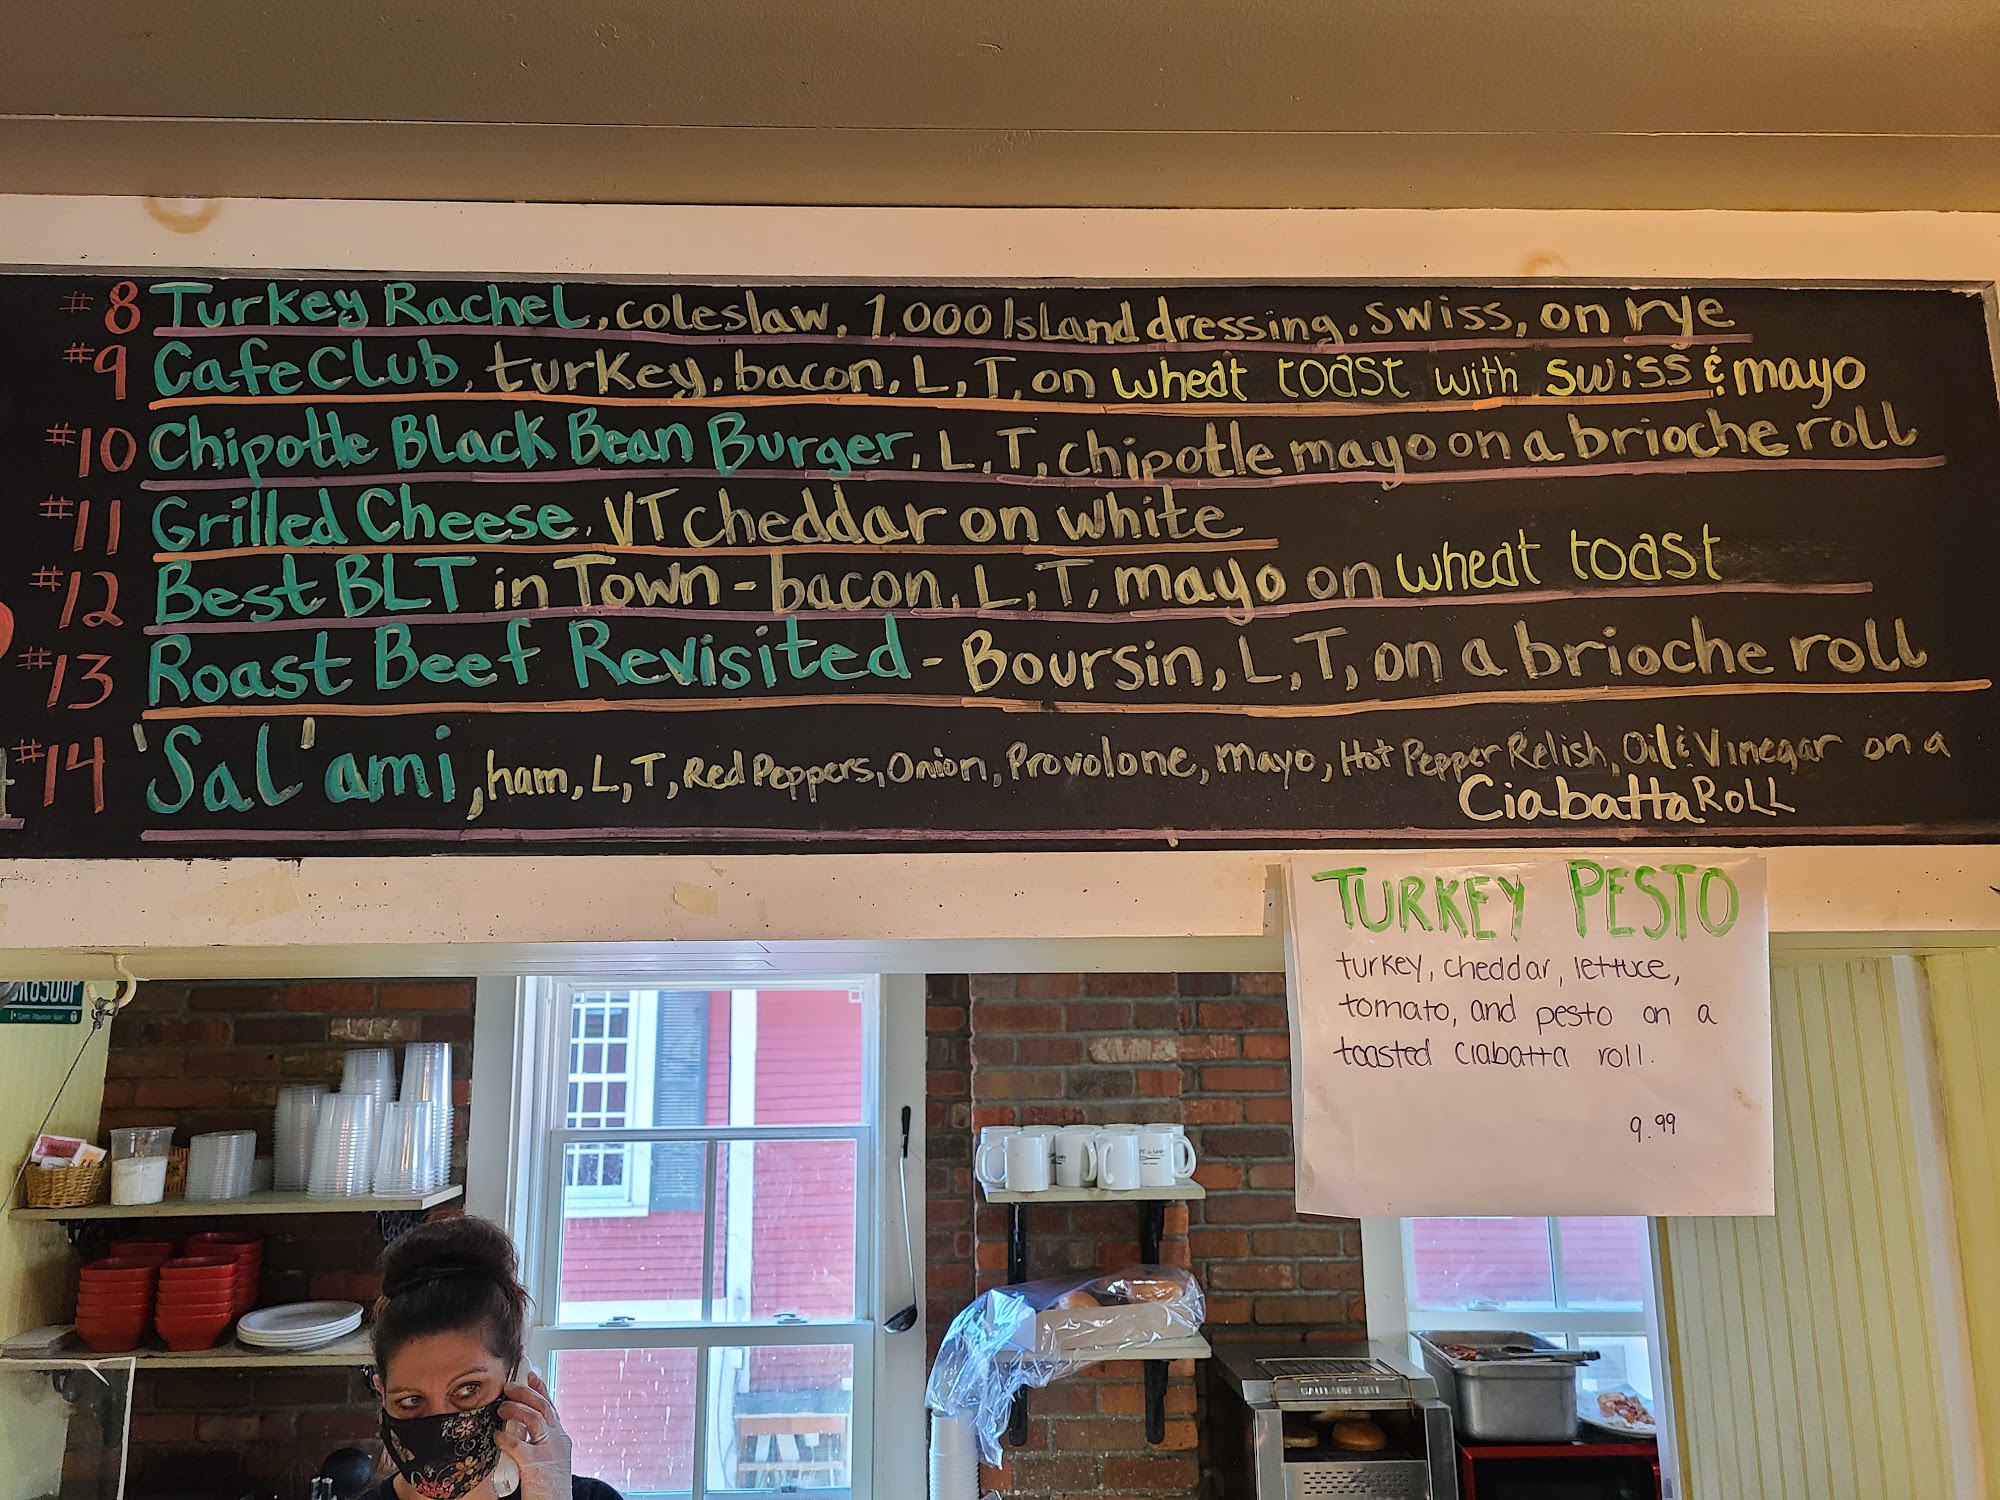 #8 Turkey Rachel, coleslaw, 1,000 Island dressing, swiss, on rye
#9 Cafe Club, turkey, bacon, L, T, on wheat toast with swiss & mayo
#10 Chipotle Black Bean Burger, L, T, chipotle mayo on a brioche roll
#11 Grilled Cheese, VT cheddar on white
#12 Best BLT in Town - bacon, L, T, mayo on wheat toast
#13 Roast Beef Revisited - Boursin, L, T, on a brioche roll
#14 'Sal'ami, ham, L, T, Red Peppers, Onion, Provolone, Mayo, Hot Pepper Relish, Oil & Vinegar on a
Ciabatta RoLL
TURKEY PESTO
turkey, cheddar, lettuce,
tomato, and pesto on a
toasted ciabatta roll.
9.99